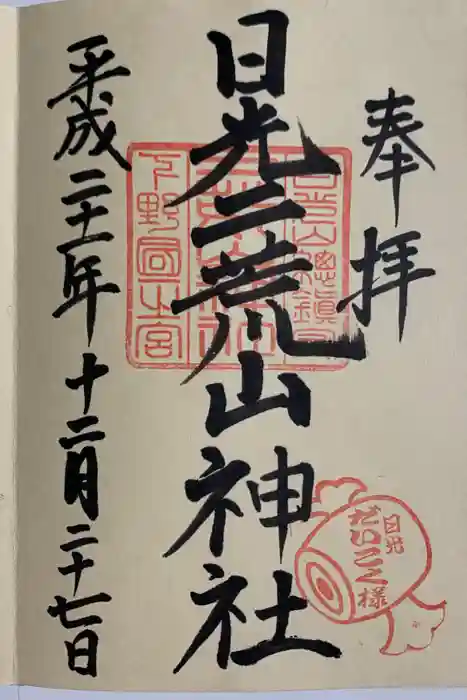 奉拝
日光二荒山神社
平成二十二年十二月二十七日
日光山總鎮守
二荒山神社
下野國一之宮
日光
だいこく様